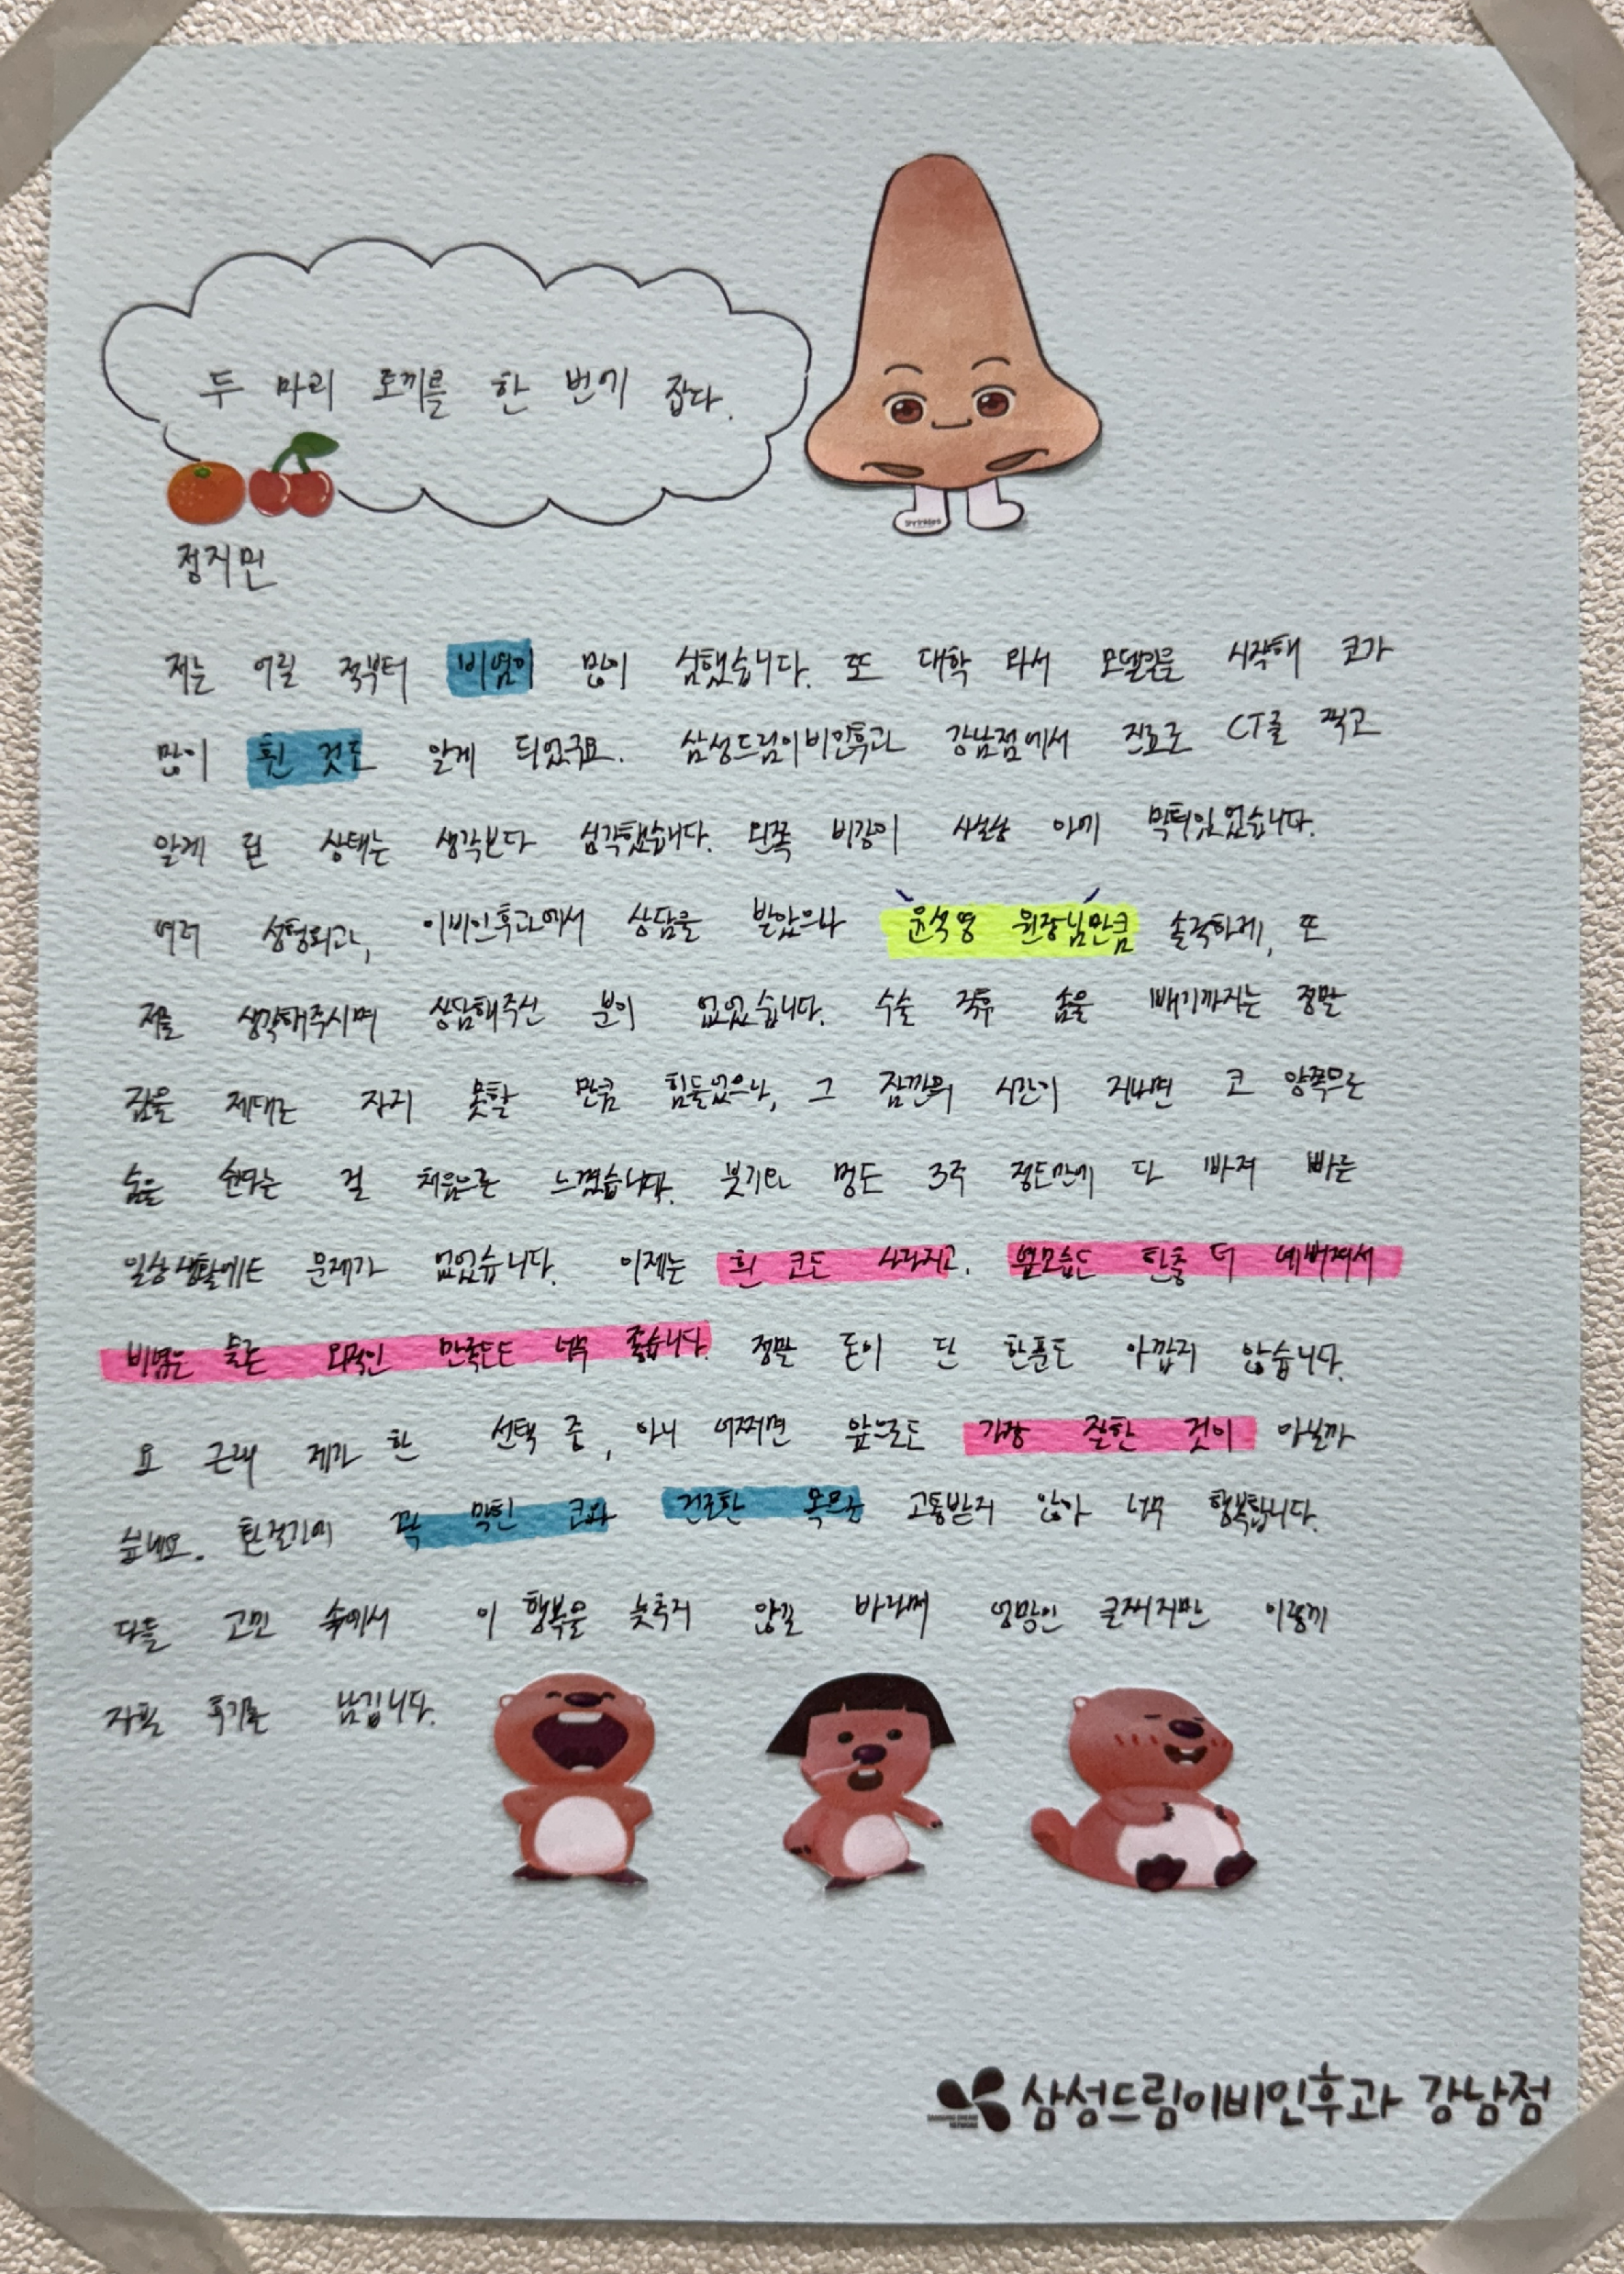 두 마리 토끼를 한 번에 잡다.
정지민
저는 어릴 적부터 비염이 많이 심했습니다. 또 대학 와서 모델일을 시작해 코가
많이 휜 것도 알게 되었구요. 삼성드림이비인후과 강남점에서 진료로 CT를 찍고
알게 된 상태는 생각보다 심각했습니다. 왼쪽 비강이 사실상 아예 막혀있었습니다.
여러 성형외과, 이비인후과에서 상담을 받았으나 윤석영 원장님만큼 솔직하게, 또
저를 생각해주시며 상담해주신 분이 없었습니다. 수술 직후 솜을 빼기까지는 정말
잠을 제대로 자지 못할 만큼 힘들었으나, 그 잠깐의 시간이 지나면 코 양쪽으로
숨을 쉰다는 걸 처음으로 느꼈습니다. 붓기와 멍도 3주 정도만에 다 빠져 빠른
일상생활에도 문제가 없었습니다. 이제는 휜 코도 사라지고, 옆모습도 한층 더 예뻐져서
비염은 물론 외적인 만족도도 너무 좋습니다. 정말 돈이 단 한푼도 아깝지 않습니다.
요 근래 제가 한 선택 중, 아니 어쩌면 앞으로도 가장 잘한 것이 아닐까
싶네요. 환절기에 꽉 막힌 코와 건조한 목으로 고통받지 않아 너무 행복합니다.
다들 고민 속에서 이 행복을 늦추지 않길 바라며 엉망인 글씨지만 이렇게
자필 후기를 남깁니다.
삼성드림이비인후과 강남점